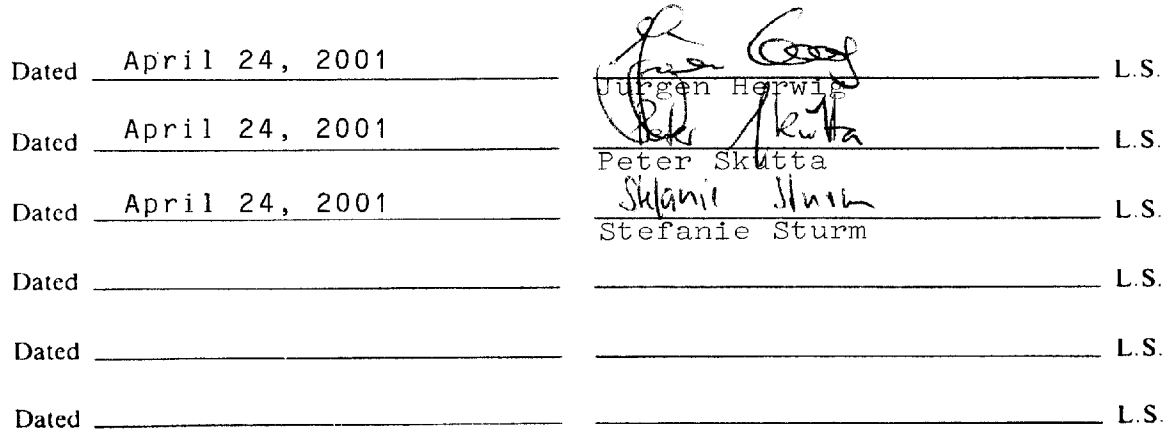 Dated April 24, 2001 L.S.
Jurgen Herwig
Dated April 24, 2001 Peter Skutta L.S.
Peter Skutta
Dated April 24, 2001 Stefanie Sturm L.S.
Stefanie Sturm
Dated L.S.
Dated L.S.
Dated L.S.